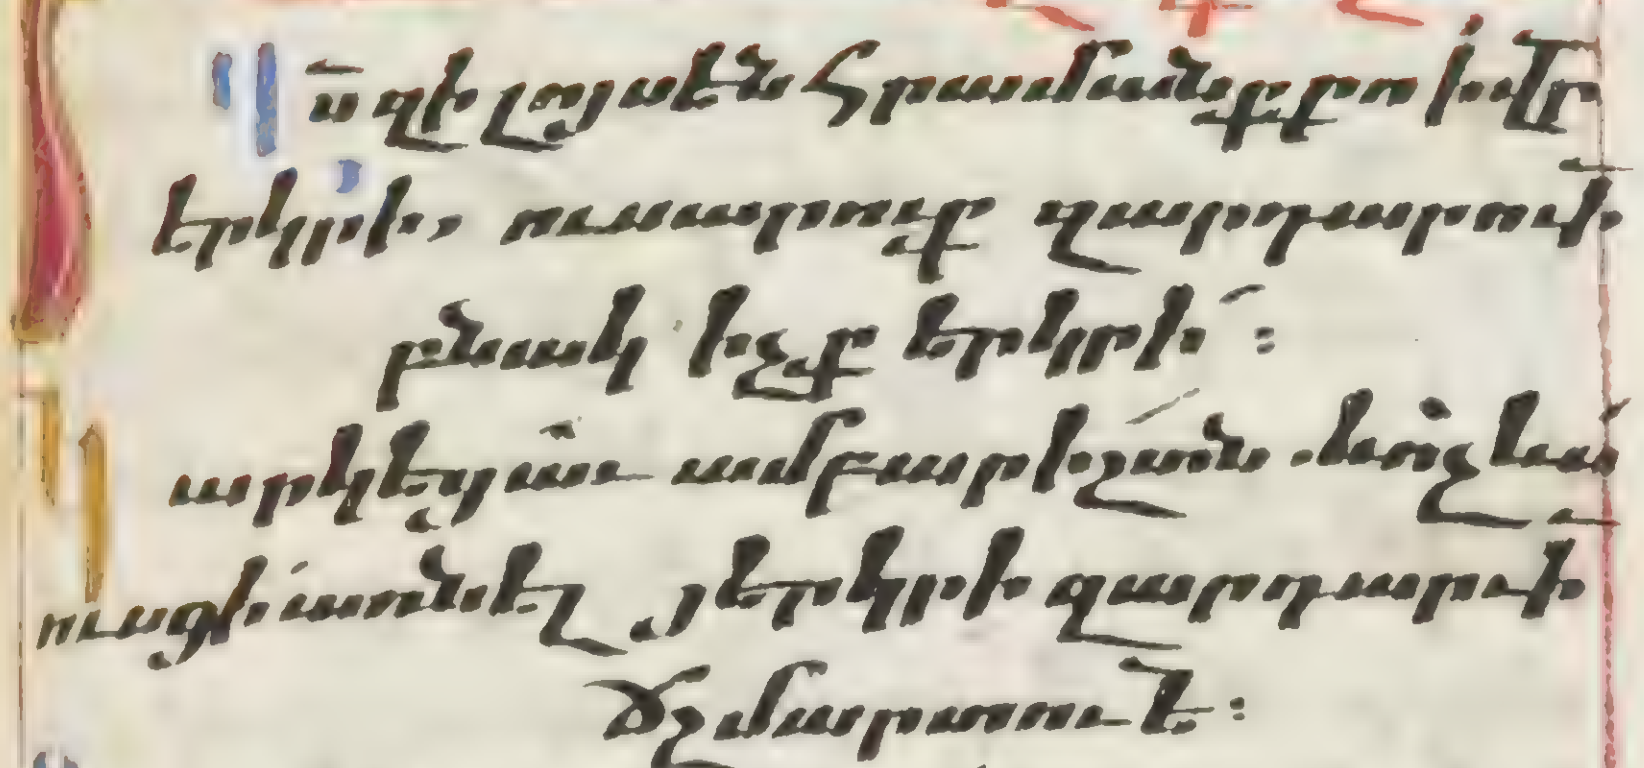 զի լոյս են հրամանք քո ի վր
երկրի, ուսարուք զարդարուի
բնակիչք երկրի՛ :
ամբարիշտն
ուսցի առնել յերկրի զարդարուի
ճշմարտուե :